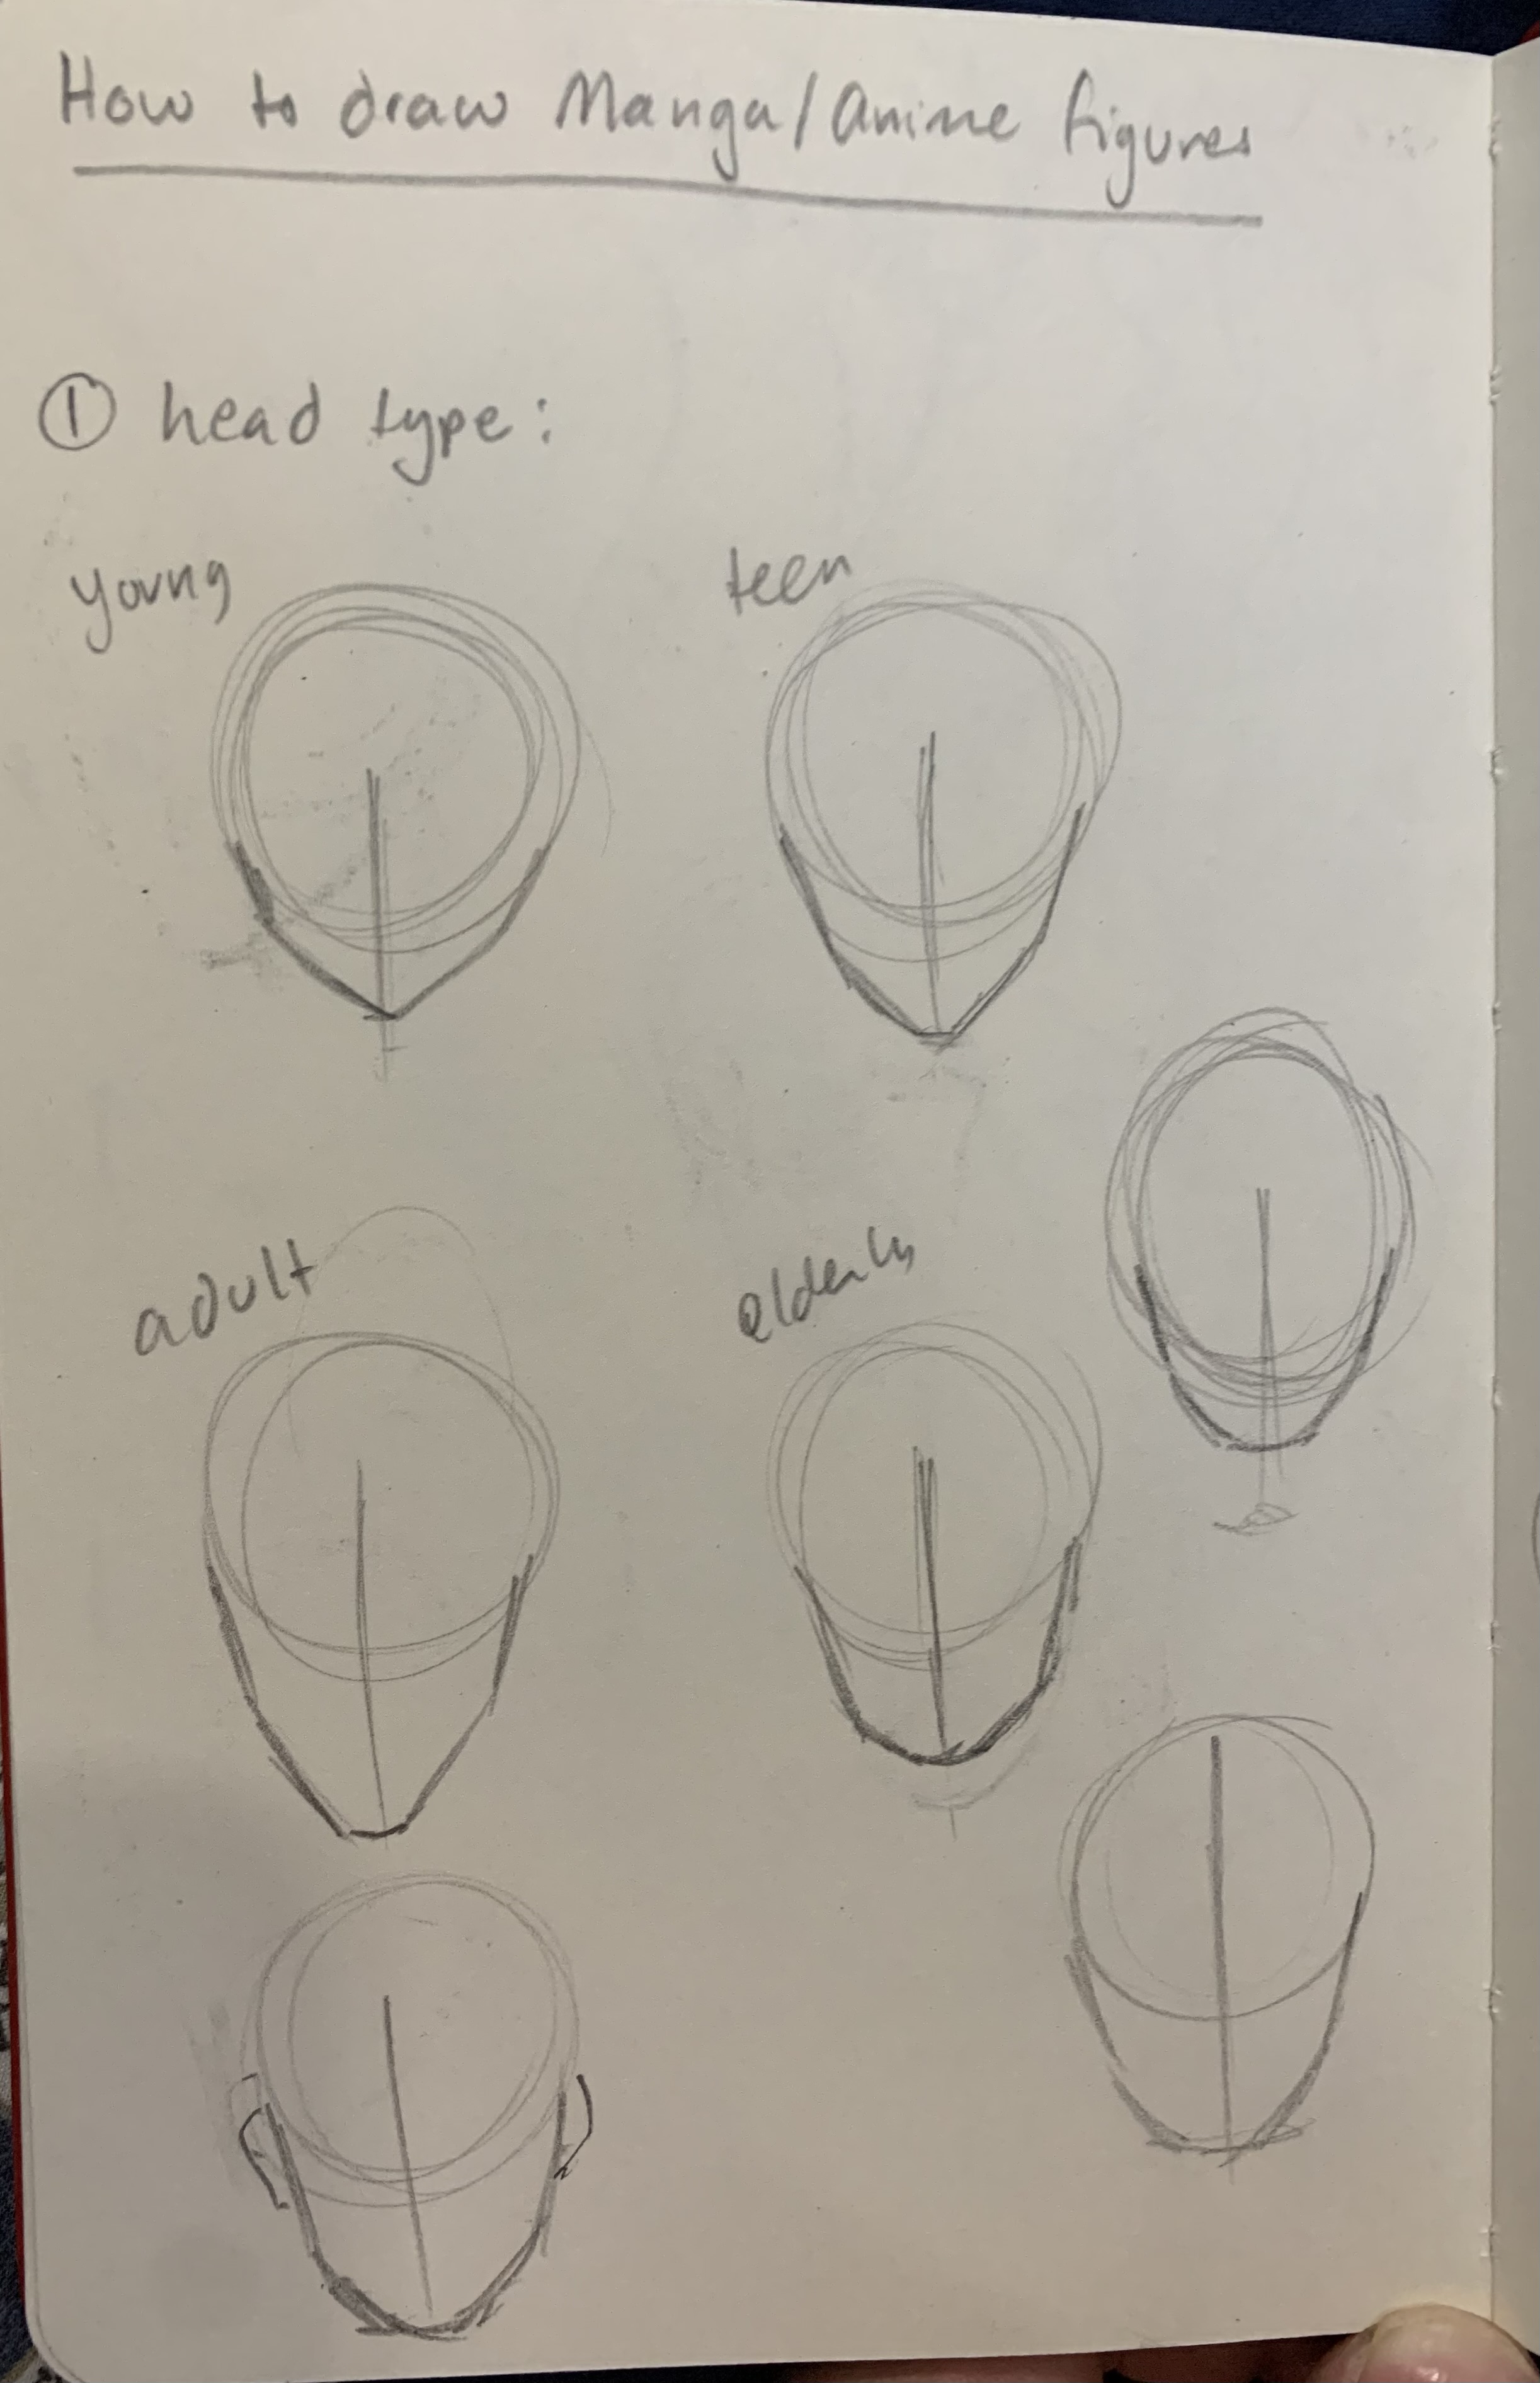 How to draw Manga/Anime figures
① head type:
young
teen
adult
elderly